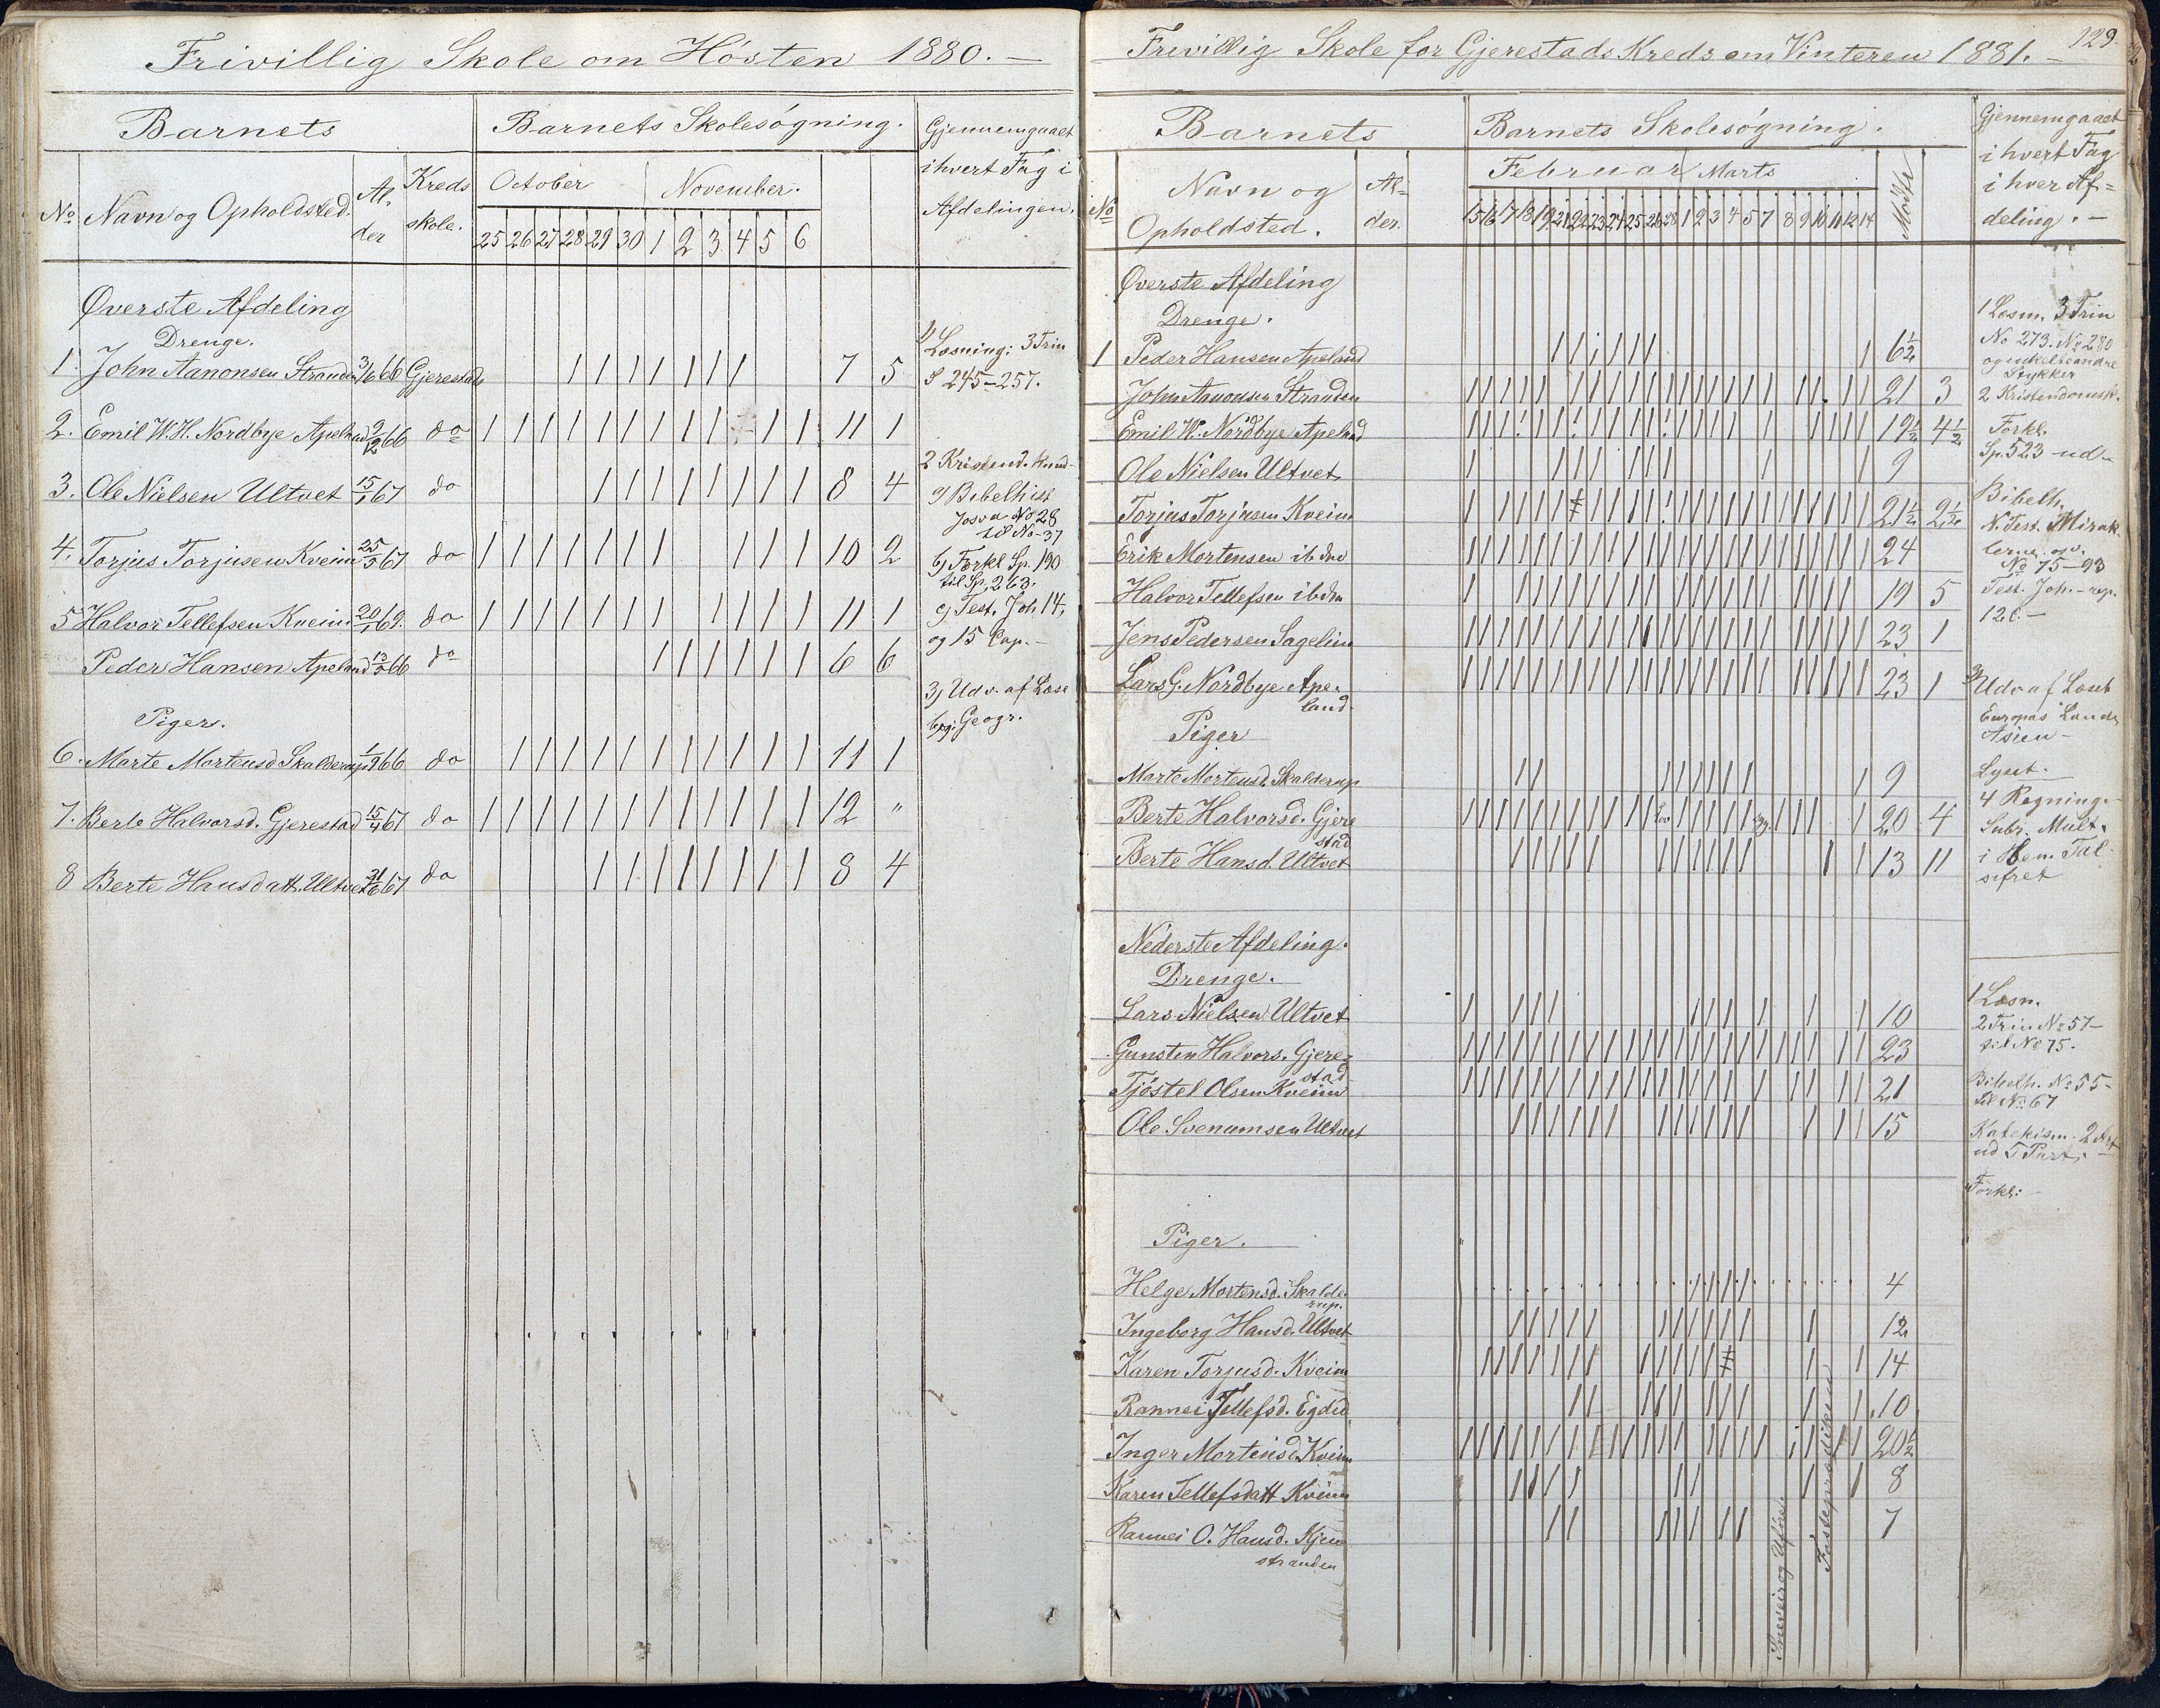 Frivillig Skole om Hösten 1880. —
Barnets
Barnets Skolesögning.
Gjennemgaaet
i hvert Fag i
Afdelingen.
No Navn og Opholdsted. Al-
der
Kreds
skole.
October November.
25 26 27 28 29 30 1 2 3 4 5 6
Øverste Afdeling
Drenge.
1. John Aanonsen Stranden 3/6 66 Gjerestads / / / / / / / 7 5
2. Emil W. H. Nordbye Apeland 2/12 66 do / / / / / / / / / / / 11 1
3. Ole Nielsen Ultvet 15/1 67 do / / / / / / / / 8 4
4. Torjus Torjusen Kveim 25/5 67 do / / / / / / / / / / 10 2
5 Halvor Tellefsen Kveim 20/1 69. do / / / / / / / / / / / 11 1
Peder Hansen Apeland 13/5 66 do / / / / / / 6 6
Piger.
6. Marte Mortensd Skalderup 1/9 66 do / / / / / / / / / / / 11 1
7. Berte Halvorsd. Gjerestad 15/4 67 do / / / / / / / / / / / / 12 "
8 Berte Hansdatt. Ultvet 21/6 67 do / / / / / / / / 8 4
1) Læsning: 3 Trin
S 245–257.
2 Kristend. Kund-
a) Bibelhist
Josva No 28
til No 37
b) Forkl Sp. 190
til Sp. 263.
c) Test. Joh 14,
og 15 Cap. —
3) Udv. af Læse
bog: Geogr.
129.
Frivillig Skole for Gjerestads Kreds om Vinteren 1881. —
Barnets
Barnets Skolesögning.
Gjennemgaaet
i hvert Fag
i hver Af=
deling. —
No
Navn og
Opholdsted.
Al=
der.
Februar Marts
15 16 17 18 19 21 22 23 24 25 26 28 1 2 3 4 5 7 8 9 10 11 12 14
Mödte
Øverste Afdeling
Drenge.
1 Peder Hansen Apeland 6½
John Aanonsen Stranden 21 3
Emil W. Nordbye Apeland 19½ 4½
Ole Nielsen Ultvet 9
Torjus Torjusen Kveim 21½ 2½
Erik Mortensen ibdm 24
Halvor Tellefsen ibdm 19 5
Jens Pedersen Sagelien 23 1
Lars G. Nordbye Ape-
land. 23 1
Piger
Marte Mortensd. Skalderup 9
Berte Halvorsd. Gjere
stad 20 4
Berte Hansd. Ultvet 13 11
Nederste Afdeling.
Drenge.
Lars Nielsen Ultvet 10
Gunsten Halvors. Gjere-
stad 23
Tjöstel Olsen Kveim 21
Ole Svenumsen Ultvet 15
Piger.
Helge Mortensd. Skalde-
rup. 4
Ingeborg Hansd. Ultvet 12
Karen Torjusd. Kveim 14
Rannei Tellefsd. Egded 10
Inger Mortensd Kveim 20½
Karen Tellefsdatt Kveim 8
Rannei O. Hansd. Kjen
stranden 7
Sneveir og Uföre.
Fasteprædiken
1 Læsn. 3 Trin
No 273. No 280
og enkelte andre
Stykker
2 Kristendomsk.
Forkl.
Sp. 523 ud
Bibelh.
N. Test. Mirak
lerne osv.
No 75–93
Test. Joh. – rep.
12 C. —
3) Udv af Læseb
Europas Lande
Asien –
Lyset.
4 Regning
Subr. Mult.
i Ben. Tal
sifret
1 Læsn.
2 Trin No 57–
til No 75.
Bibelh. No 55–
til No 67
Katekism. 2 Art
ud 5 Part. —
Forkl: –